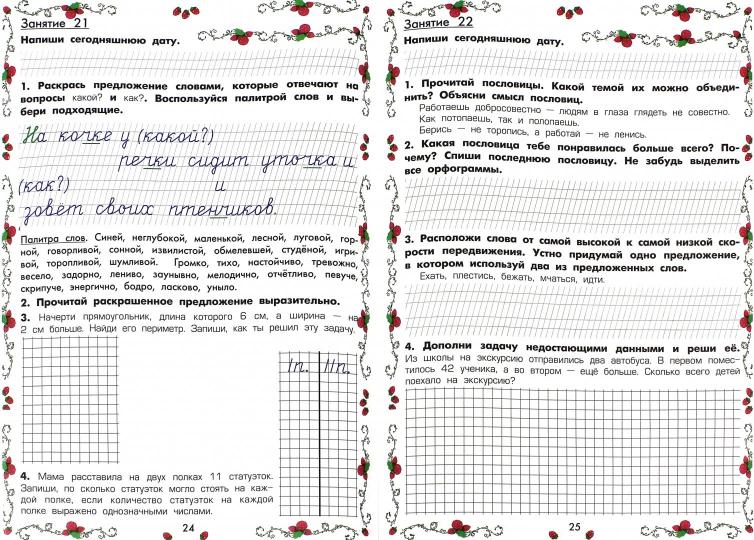 Занятие 21
Напиши сегодняшнюю дату.
1. Раскрась предложение словами, которые отвечают на
вопросы какой? и как?. Воспользуйся палитрой слов и вы-
бери подходящие.
На кочке у (какой?)
речки сидит уточка и
(как?) и
зовёт своих птенчиков.
Палитра слов. Синей, неглубокой, маленькой, лесной, луговой, гор-
ной, говорливой, сонной, извилистой, обмелевшей, студёной, игри-
вой, торопливой, шумливой. Громко, тихо, настойчиво, тревожно,
весело, задорно, лениво, заунывно, мелодично, отчётливо, певуче,
скрипуче, энергично, бодро, ласково, уныло.
2. Прочитай раскрашенное предложение выразительно.
3. Начерти прямоугольник, длина которого 6 см, а ширина — на
2 см больше. Найди его периметр. Запиши, как ты решил эту задачу.
Iп. IIп.
4. Мама расставила на двух полках 11 статуэток.
Запиши, по сколько статуэток могло стоять на каж-
дой полке, если количество статуэток на каждой
полке выражено однозначными числами.
24
Занятие 22
Напиши сегодняшнюю дату.
1. Прочитай пословицы. Какой темой их можно объеди-
нить? Объясни смысл пословиц.
Работаешь добросовестно — людям в глаза глядеть не совестно.
Как потопаешь, так и полопаешь.
Берись — не торопись, а работай — не ленись.
2. Какая пословица тебе понравилась больше всего? По-
чему? Спиши последнюю пословицу. Не забудь выделить
все орфограммы.
3. Расположи слова от самой высокой к самой низкой ско-
рости передвижения. Устно придумай одно предложение,
в котором используй два из предложенных слов.
Ехать, плестись, бежать, мчаться, идти.
4. Дополни задачу недостающими данными и реши её.
Из школы на экскурсию отправились два автобуса. В первом помес-
тилось 42 ученика, а во втором — ещё больше. Сколько всего детей
поехало на экскурсию?
25